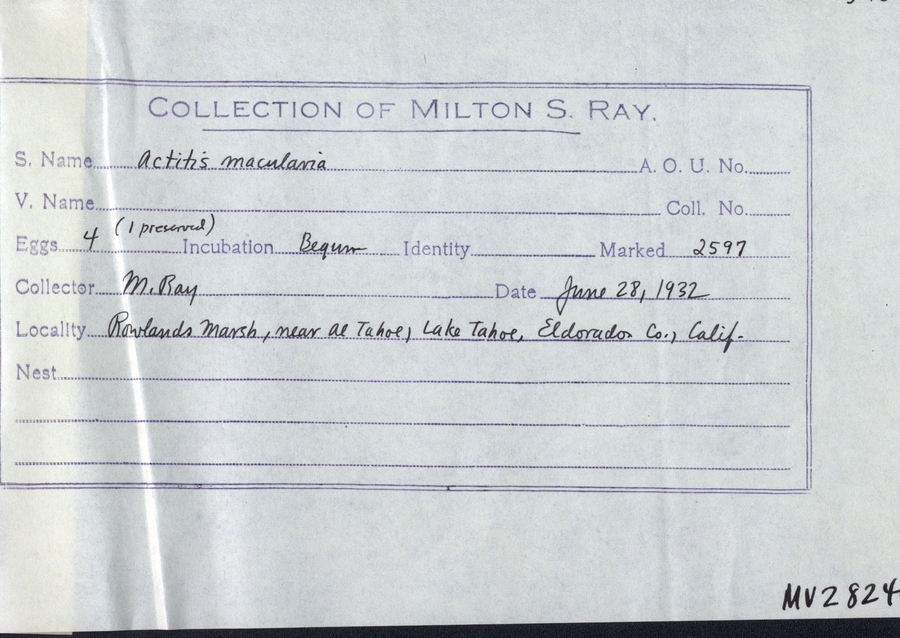 COLLECTION OF MILTON S. RAY.
S. Name Actitis macularia A. O. U. No.
V. Name Coll. No.
(1 preserved)
Eggs 4 Incubation Begun Identity Marked 2597
Collector M. Ray Date June 28, 1932
Locality Rowlands Marsh, near Al Tahoe, Lake Tahoe, Eldorado Co., Calif.
Nest
MV2824